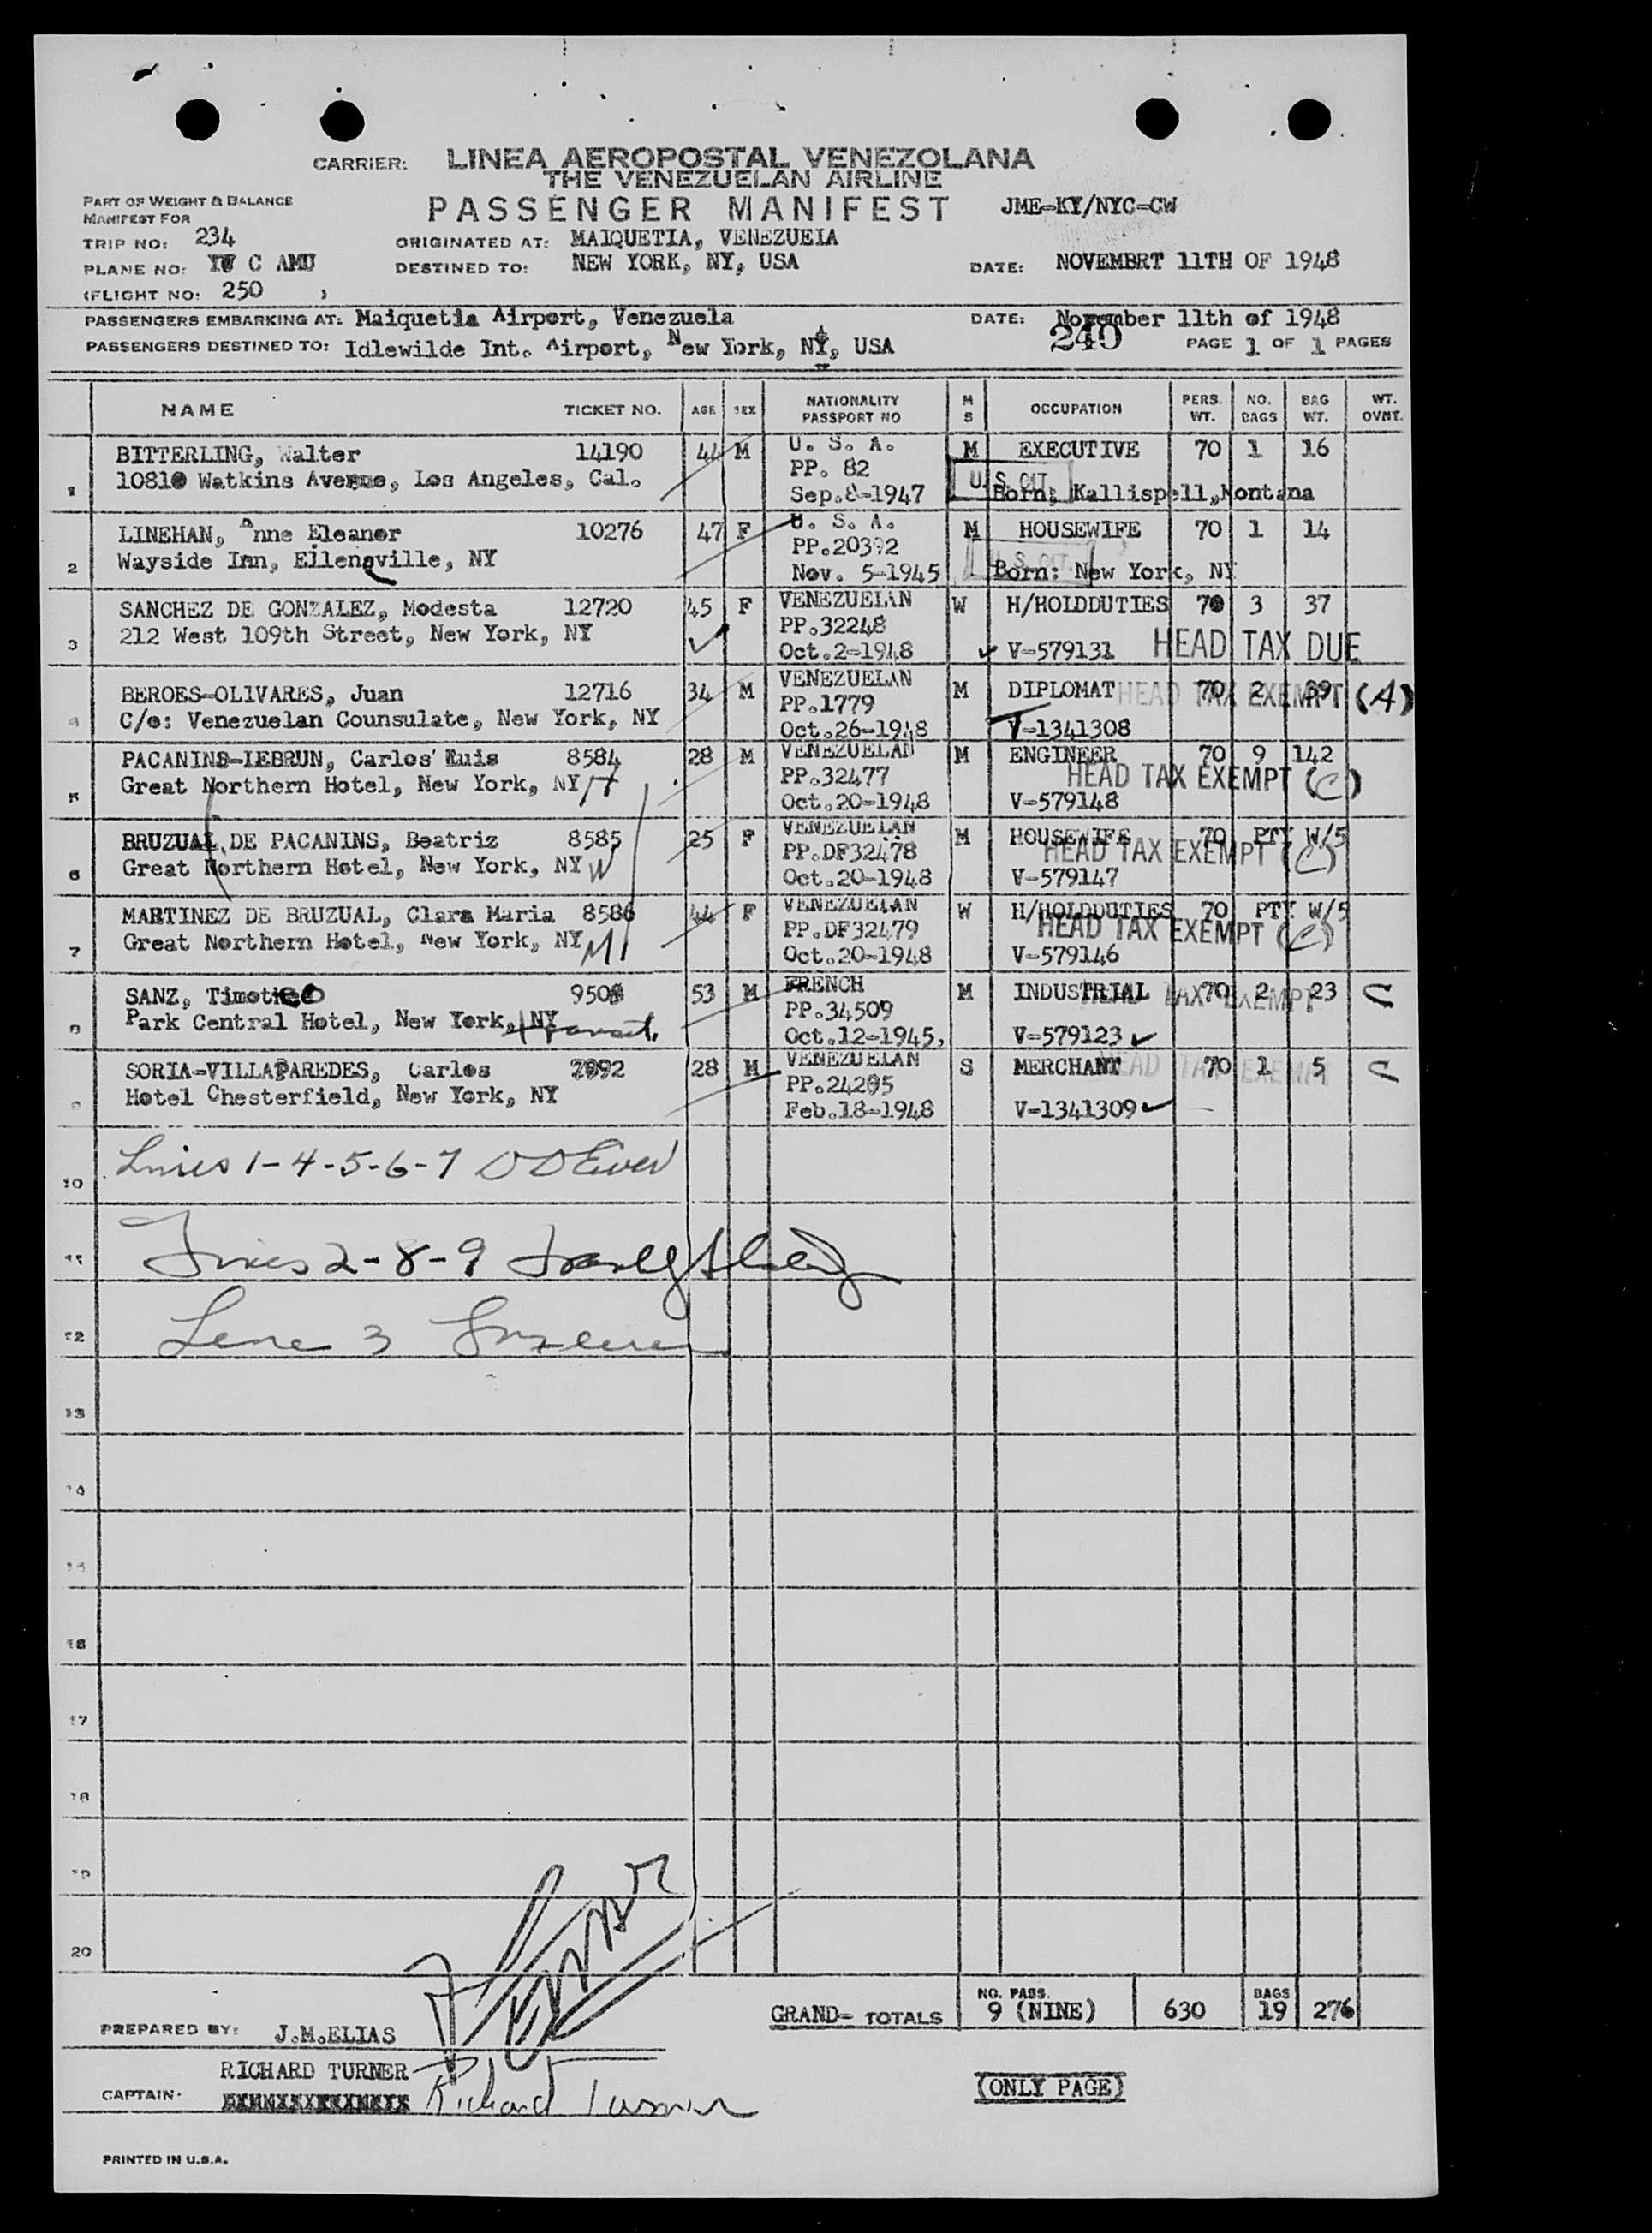 CARRIER: LINEA AEROPOSTAL VENEZOLANA
THE VENEZUELAN AIRLINE
PART OF WEIGHT & BALANCE
MANIFEST FOR
PASSENGER MANIFEST JME-KY/NYC-CW
TRIP NO: 234 ORIGINATED AT: MAIQUETIA, VENEZUEIA
PLANE NO: C AMU DESTINED TO: NEW YORK, NY, USA DATE: NOVEMBRT 11TH OF 1948
(FLIGHT NO: 250 )
PASSENGERS EMBARKING AT: Maiquetia Airport, Venezuela DATE: November 11th of 1948
PASSENGERS DESTINED TO: Idlewilde Int. Airport, New York, NY, USA 240 PAGE 1 OF 1 PAGES
NAME TICKET NO. AGE SEX NATIONALITY PASSPORT NO M S OCCUPATION PERS. WT. NO. BAGS BAG WT. WT. OVNT.
BITTERLING, Walter 14190 44 M U. S. A. M EXECUTIVE 70 1 16
1 10810 Watkins Avenue, Los Angeles, Cal. PP. 82 U.S. CIT.
Sep.8-1947 Born: Kallispell,Montana
LINEHAN, Anne Eleanor 10276 47 F U. S. A. M HOUSEWIFE 70 1 14
2 Wayside Inn, Ellenville, NY PP.20392 U.S. CIT.
Nov. 5-1945 Born: New York, NY
SANCHEZ DE GONZALEZ, Modesta 12720 45 F VENEZUELAN W H/HOLDDUTIES 70 3 37
3 212 West 109th Street, New York, NY PP.32248
Oct.2-1948 V-579131 HEAD TAX DUE
BEROES-OLIVARES, Juan 12716 34 M VENEZUELAN M DIPLOMAT 70 2 39 HEAD TAX EXEMPT (A)
4 C/o: Venezuelan Counsulate, New York, NY PP.1779
Oct.26-1948 V-1341308
PACANINS-LEBRUN, Carlos Luis 8584 28 M VENEZUELAN M ENGINEER 70 9 142
5 Great Northern Hotel, New York, NY H PP.32477 HEAD TAX EXEMPT (C)
Oct.20-1948 V-579148
BRUZUAL DE PACANINS, Beatriz 8585 25 F VENEZUELAN M HOUSEWIFE 70 PTY W/5
6 Great Northern Hotel, New York, NY W PP.DF32478 HEAD TAX EXEMPT (C)
Oct.20-1948 V-579147
MARTINEZ DE BRUZUAL, Clara Maria 8586 44 F VENEZUELAN W H/HOLDDUTIES 70 PTY W/5
7 Great Northern Hotel, New York, NY M PP.DF32479 HEAD TAX EXEMPT (C)
Oct.20-1948 V-579146
SANZ, Timoteo 9508 53 M FRENCH M INDUSTRIAL 70 2 23 HEAD TAX EXEMPT C
8 Park Central Hotel, New York, NY transit. PP.34509
Oct.12-1945, V-579123
SORIA-VILLAPAREDES, Carlos 7092 28 M VENEZUELAN S MERCHANT 70 1 5 HEAD TAX EXEMPT C
9 Hotel Chesterfield, New York, NY PP.24295
Feb.18-1948 V-1341309
10 Lines 1-4-5-6-7
11 Lines 2-8-9
12 Line 3
13
14
15
16
17
18
19
20
GRAND- TOTALS NO. PASS. 9 (NINE) 630 BAGS 19 276
PREPARED BY: J.M.ELIAS
RICHARD TURNER
CAPTAIN: Richard Turner
(ONLY PAGE)
PRINTED IN U.S.A.